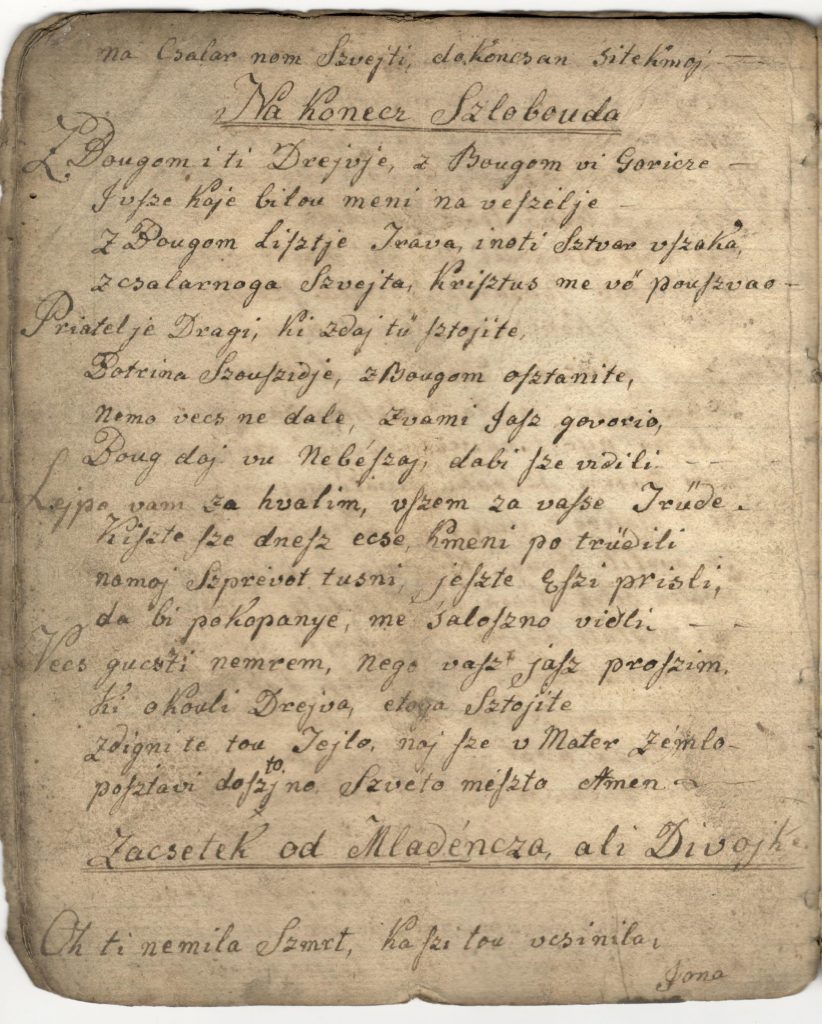 na Csalar nom Szvejti, dokoncsan sitek moj
Na Konecz Szlobouda
Z Bougom i ti Drejvje, z Bougom vi Goricze
I vsze kaje bilou meni na veszélje
Z Bougom Lisztje Trava, inoti Sztvar vszaka,
z csalarnoga Szvejta, Krisztus me vö pouszvao
Priatelje Dragi, ki zdaj tü sztojite,
Botrina Szouszidje, z Bougom osztanite,
nemo vecs ne dale, zvami Jasz govorio,
Boug daj vu Nebészaj, dabi sze vidili
Lejpo vam za hvalim, vszem za vasse Trüde.
Kiszte sze dnesz ecse, kmeni po trüdili
namoj Szprevot tusni, jeszte Eszi prisli,
da bi pokopanye, me saloszno vidli.
Vecs gucsti nemrem, nego vasz jasz proszim,
ki okouli Drejva, etoga Sztojite
zdigni te tou Tejlo, naj sze v Mater Zémlo
posztavi dosztojno Szveto meszto Amen
Zacsetek od Mladéncza, ali Divojke
Oh ti nemila Szmrt, ka szi tou vcsinila,
Jona